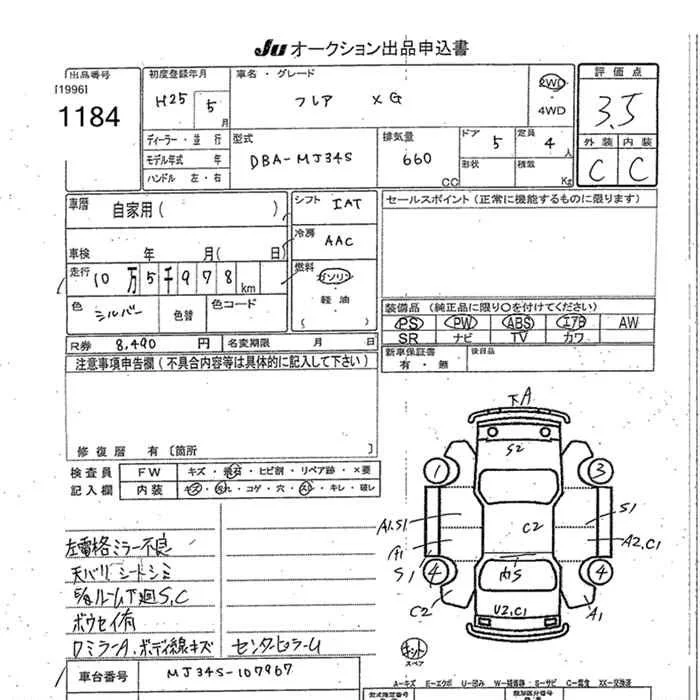 Ju オークション出品申込書
出品番号 初度登録年月 車名・グレード 評価点
[1996] H25 5月 フレア XG 2WD 3.5
1184 ・4WD
ディーラー・並行 型式 排気量 ドア 定員 外装 内装
モデル年式 年 DBA-MJ34S 660 CC 5 4人 C C
ハンドル 左・右 形状 積載 Kg
車歴 自家用( ) シフト IAT セールスポイント(正常に機能するものに限ります)
車検 年 月( 日) 冷房 AAC
走行 10万5千978km 燃料 ガソリン
軽油
( )
色 シルバー 色替 色コード 装備品(純正品に限り○を付けてください)
PS PW ABS エアB AW
R券 8,490円 名変期限 月 日 SR ナビ TV カワ
注意事項申告欄(不具合内容等は具体的に記入して下さい) 新車保証書 有・無 後日品
修復歴 有〔箇所 〕
検査員 FW キズ・飛石・ヒビ割・リペア跡・×要
記入欄 内装 キズ・汚れ・コゲ・穴・スレ・キレ・破レ
下A
S2
1
3
A1.S1
S1
C2
A1
A2,C1
S1
4
内S
4
C2
U2,C1
A1
左電格ミラー不良
天バリ シートシミ
ルーム下廻S,C
ボウセイ有
ロミラーA.ボディ線キズ センターピラーU
キット
スペア
車台番号 MJ34S-107967
A-キズ E-エクボ U-凹み W-補修跡 S-サビ C-腐食 XX-交換済